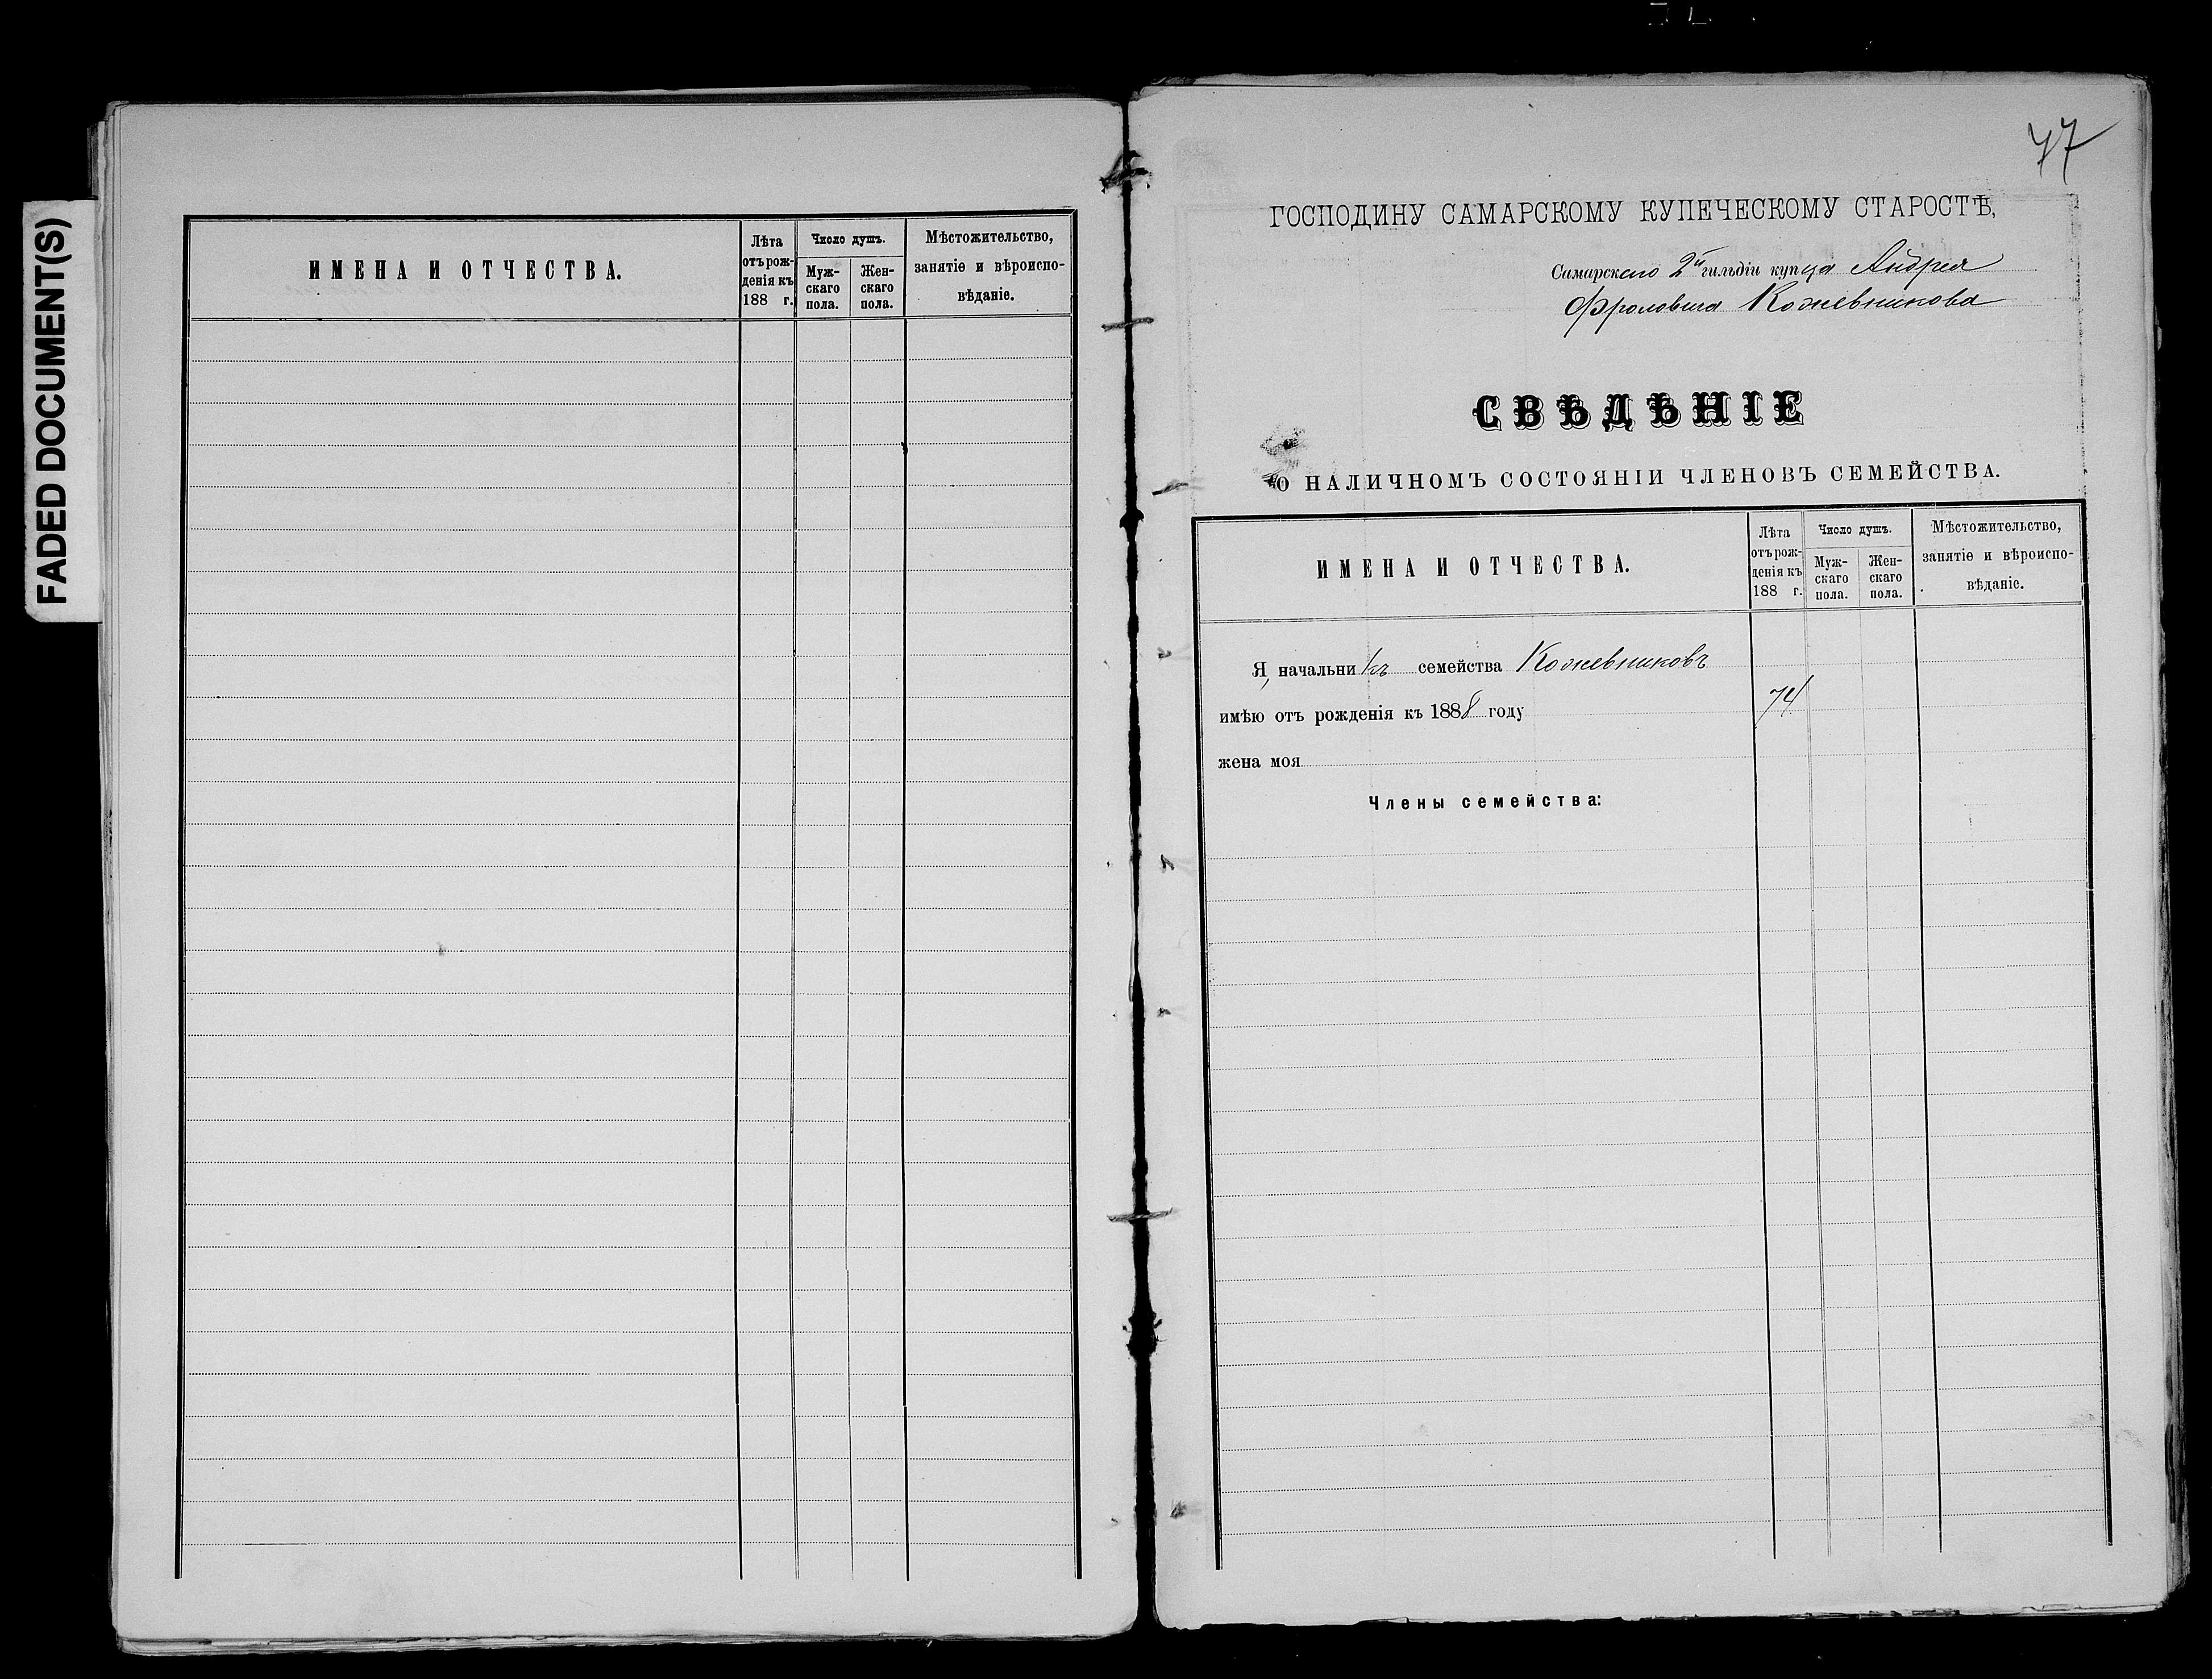 FADED DOCUMENT(S)
ИМЕНА И ОТЧЕСТВА.
Лѣта
отъ рож-
денія къ
188 г.
Число душъ.
Муж-
скаго
пола.
Жен-
скаго
пола.
Мѣстожительство,
занятіе и вѣроиспо-
вѣданіе.
47
ГОСПОДИНУ САМАРСКОМУ КУПЕЧЕСКОМУ СТАРОСТѢ,
Самарскаго 2й гильдіи купца Андрея
Фроловича Кожевникова
СВѢДѢНІЕ
О НАЛИЧНОМЪ СОСТОЯНІИ ЧЛЕНОВЪ СЕМЕЙСТВА.
ИМЕНА И ОТЧЕСТВА.
Лѣта
отъ рож-
денія къ
188 г.
Число душъ.
Муж-
скаго
пола.
Жен-
скаго
пола.
Мѣстожительство,
занятіе и вѣроиспо-
вѣданіе.
Я, начальникъ семейства Кожевниковъ
имѣю отъ рожденія къ 1888 году 74
жена моя
Члены семейства: